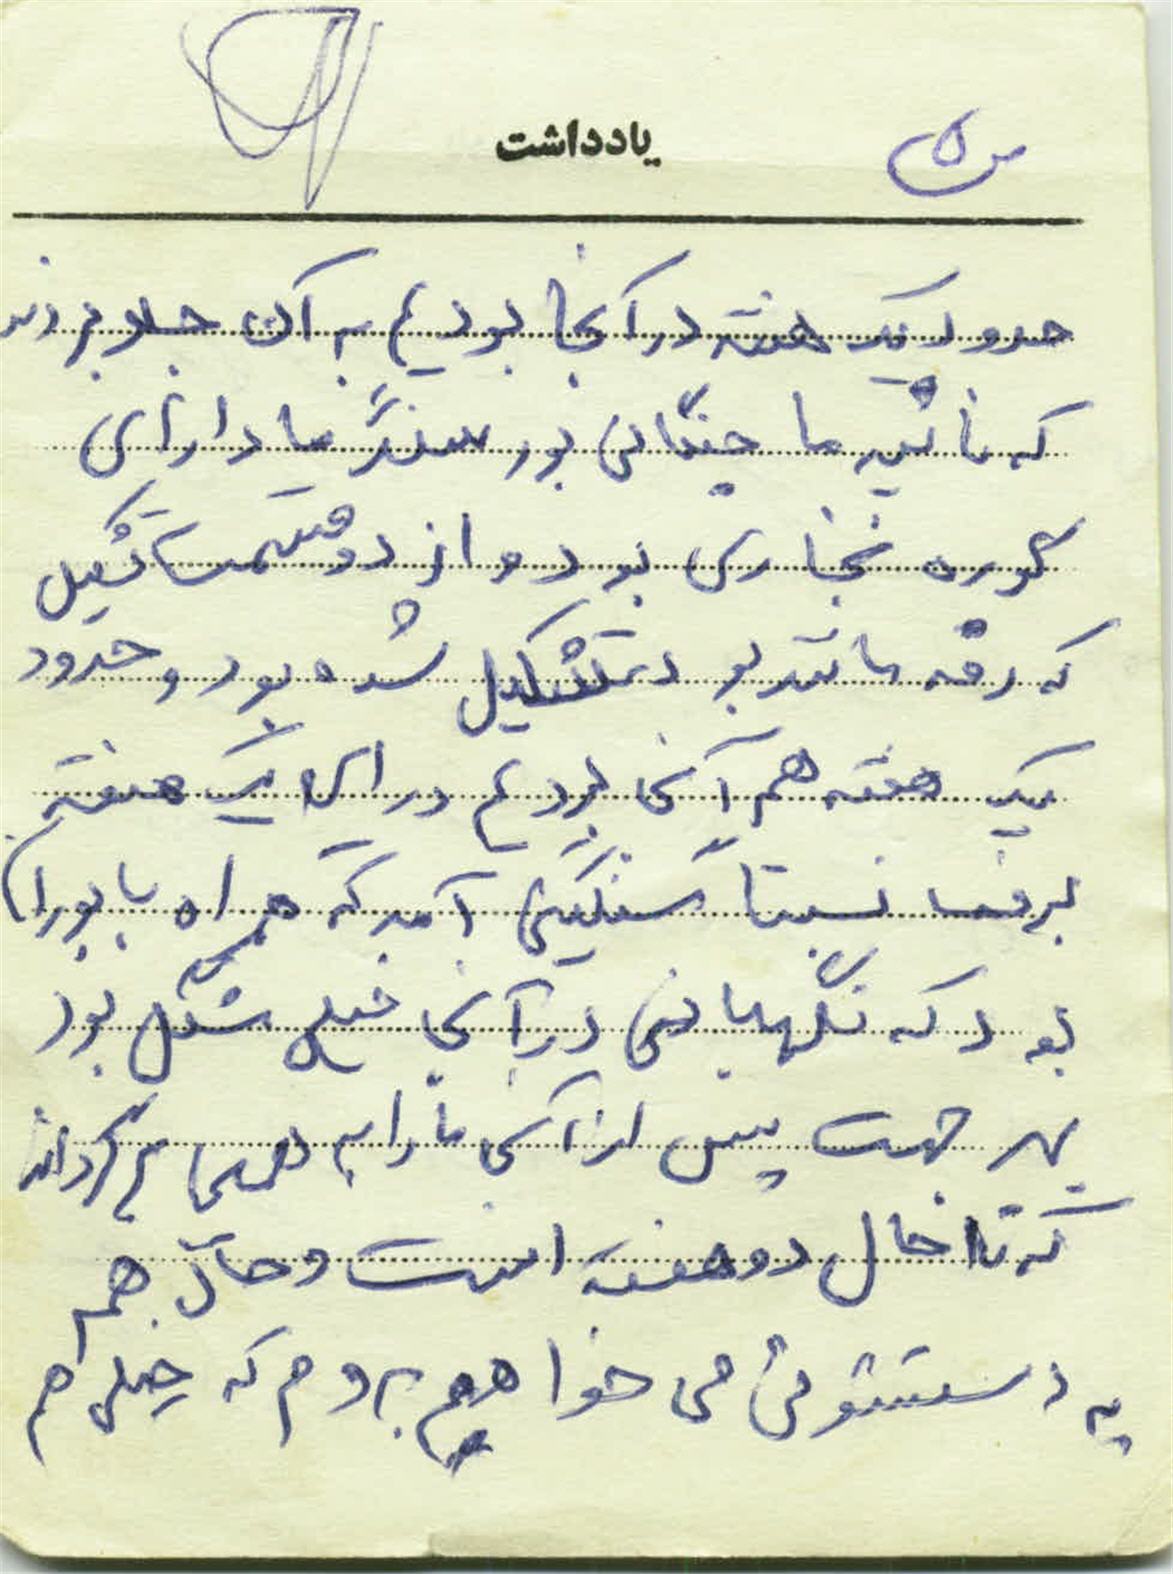 یادداشت
ص ۵
حدود یک هفته در آنجا بودیم به آن جلو بردند
که تا تپه ما چنگالی بود سنگر ما دارای
کوره بخاری بود و از دو قسمت تشکیل
که رفته مانند بود تشکیل شده بود و حدود
یک هفته هم آنجا بودیم در این یک هفته
برف نسبتا سنگینی آمد که همراه با بوران
بود که نگهبانی در آنجا خیلی مشکل بود
بهر جهت پس از آن ما را به همان
که تا حال دو هفته است و حال هم
به دستشوئی می خواهم بروم که خیلی هم